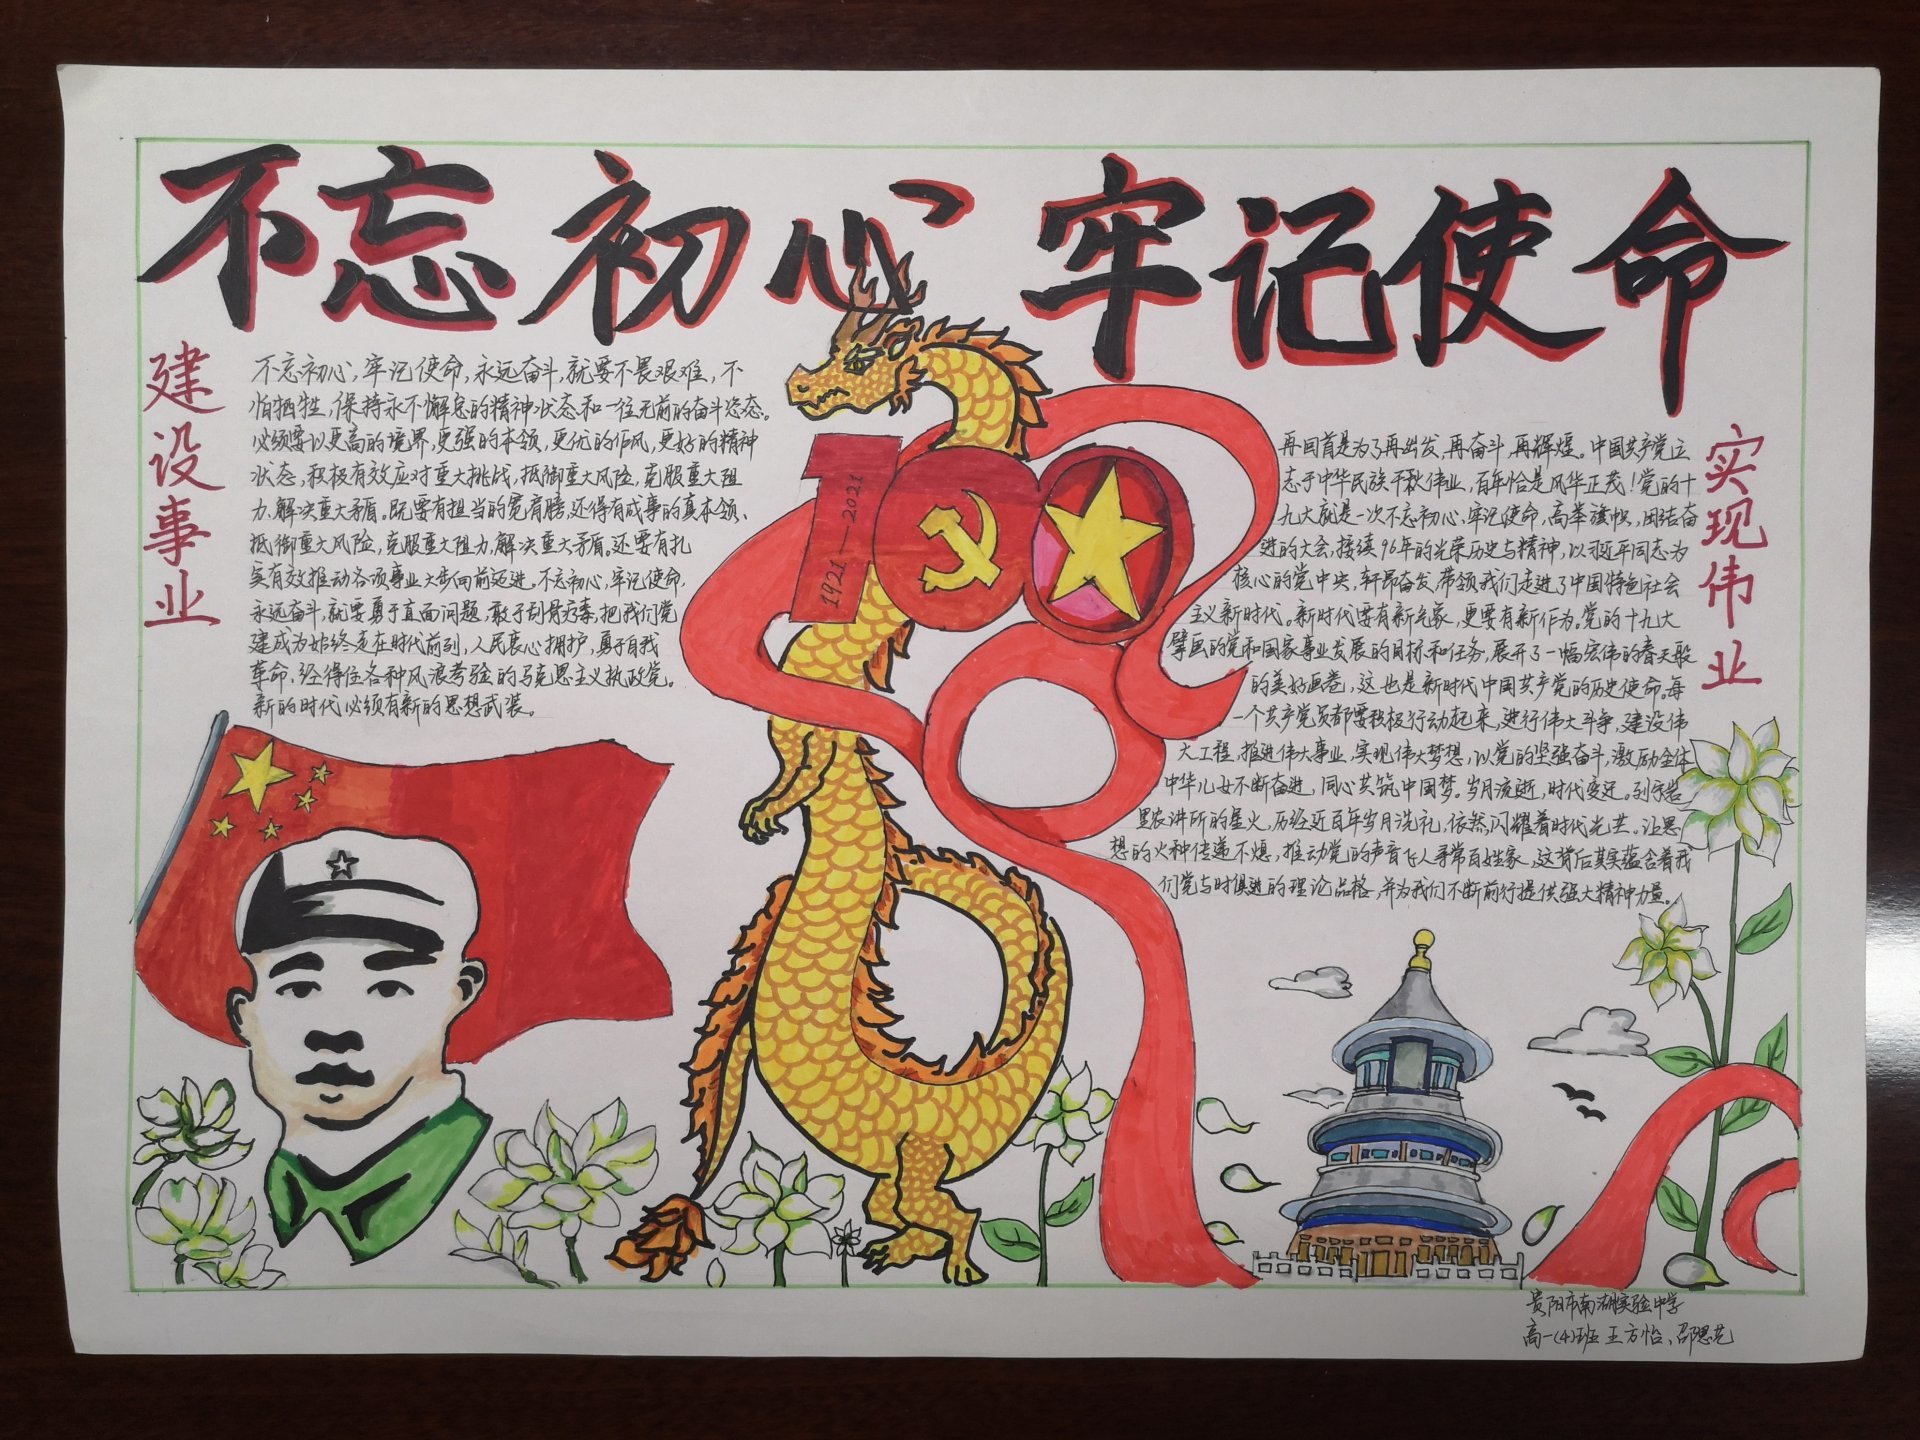 不忘初心 牢记使命
建设事业
不忘初心,牢记使命,永远奋斗,就要不畏艰难,不
怕牺牲,保持永不懈怠的精神状态和一往无前的奋斗姿态。
必须要以更高的境界,更强的本领,更优的作风,更好的精神
状态,积极有效应对重大挑战,抵御重大风险,克服重大阻
力,解决重大矛盾。既要有担当的宽肩膀,还得有成事的真本领、
抵御重大风险,克服重大阻力,解决重大矛盾。还要有扎
实有效推动各项事业大步向前迈进。不忘初心,牢记使命,
永远奋斗,就要勇于直面问题,敢于刮骨疗毒,把我们党
建成为始终走在时代前列,人民衷心拥护,勇于自我
革命,经得住各种风浪考验的马克思主义执政党。
新的时代必须有新的思想武装。
1921—2021
再回首是为了再出发,再奋斗,再辉煌。中国共产党立
志于中华民族千秋伟业,百年恰是风华正茂!党的十
九大就是一次不忘初心,牢记使命,高举旗帜,团结奋
进的大会,接续96年的光荣历史与精神,以习近平同志为
核心的党中央,轩昂奋发,带领我们走进了中国特色社会
主义新时代。新时代要有新气象,更要有新作为。党的十九大
擘画的党和国家事业发展的目标和任务,展开了一幅宏伟的春天般
的美好画卷,这也是新时代中国共产党的历史使命。每
一个共产党员都要积极行动起来,进行伟大斗争,建设伟
大工程,推进伟大事业,实现伟大梦想,以党的坚强奋斗,激励全体
中华儿女不断奋进,同心共筑中国梦。岁月流逝,时代变迁。
农讲所的星火,历经近百年岁月洗礼,依然闪耀着时代光芒。让思
想的火种传递不熄,推动党的声音飞入寻常百姓家,这背后其实蕴含着我
们党与时俱进的理论品格,并为我们不断前行提供强大精神力量。
实现伟业
贵阳市南湖实验中学
高一(4)班 王方怡、邵思苑